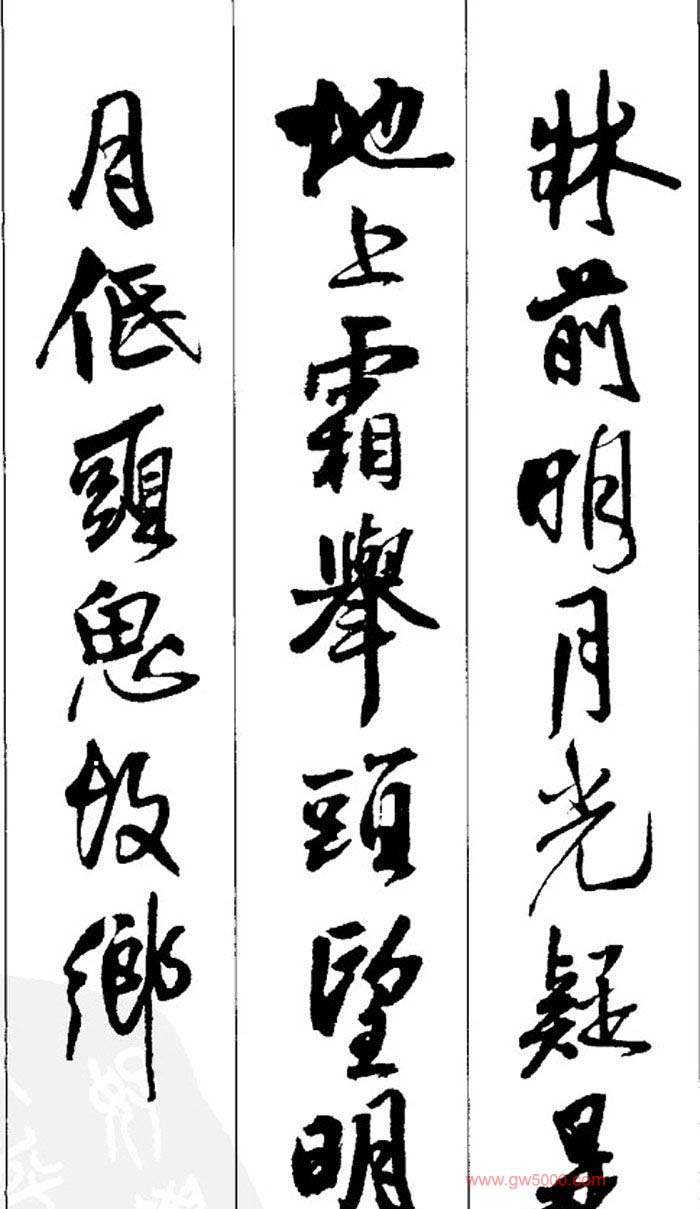 牀前明月光疑是
地上霜舉頭望明
月低頭思故鄉
www.gw5000.com